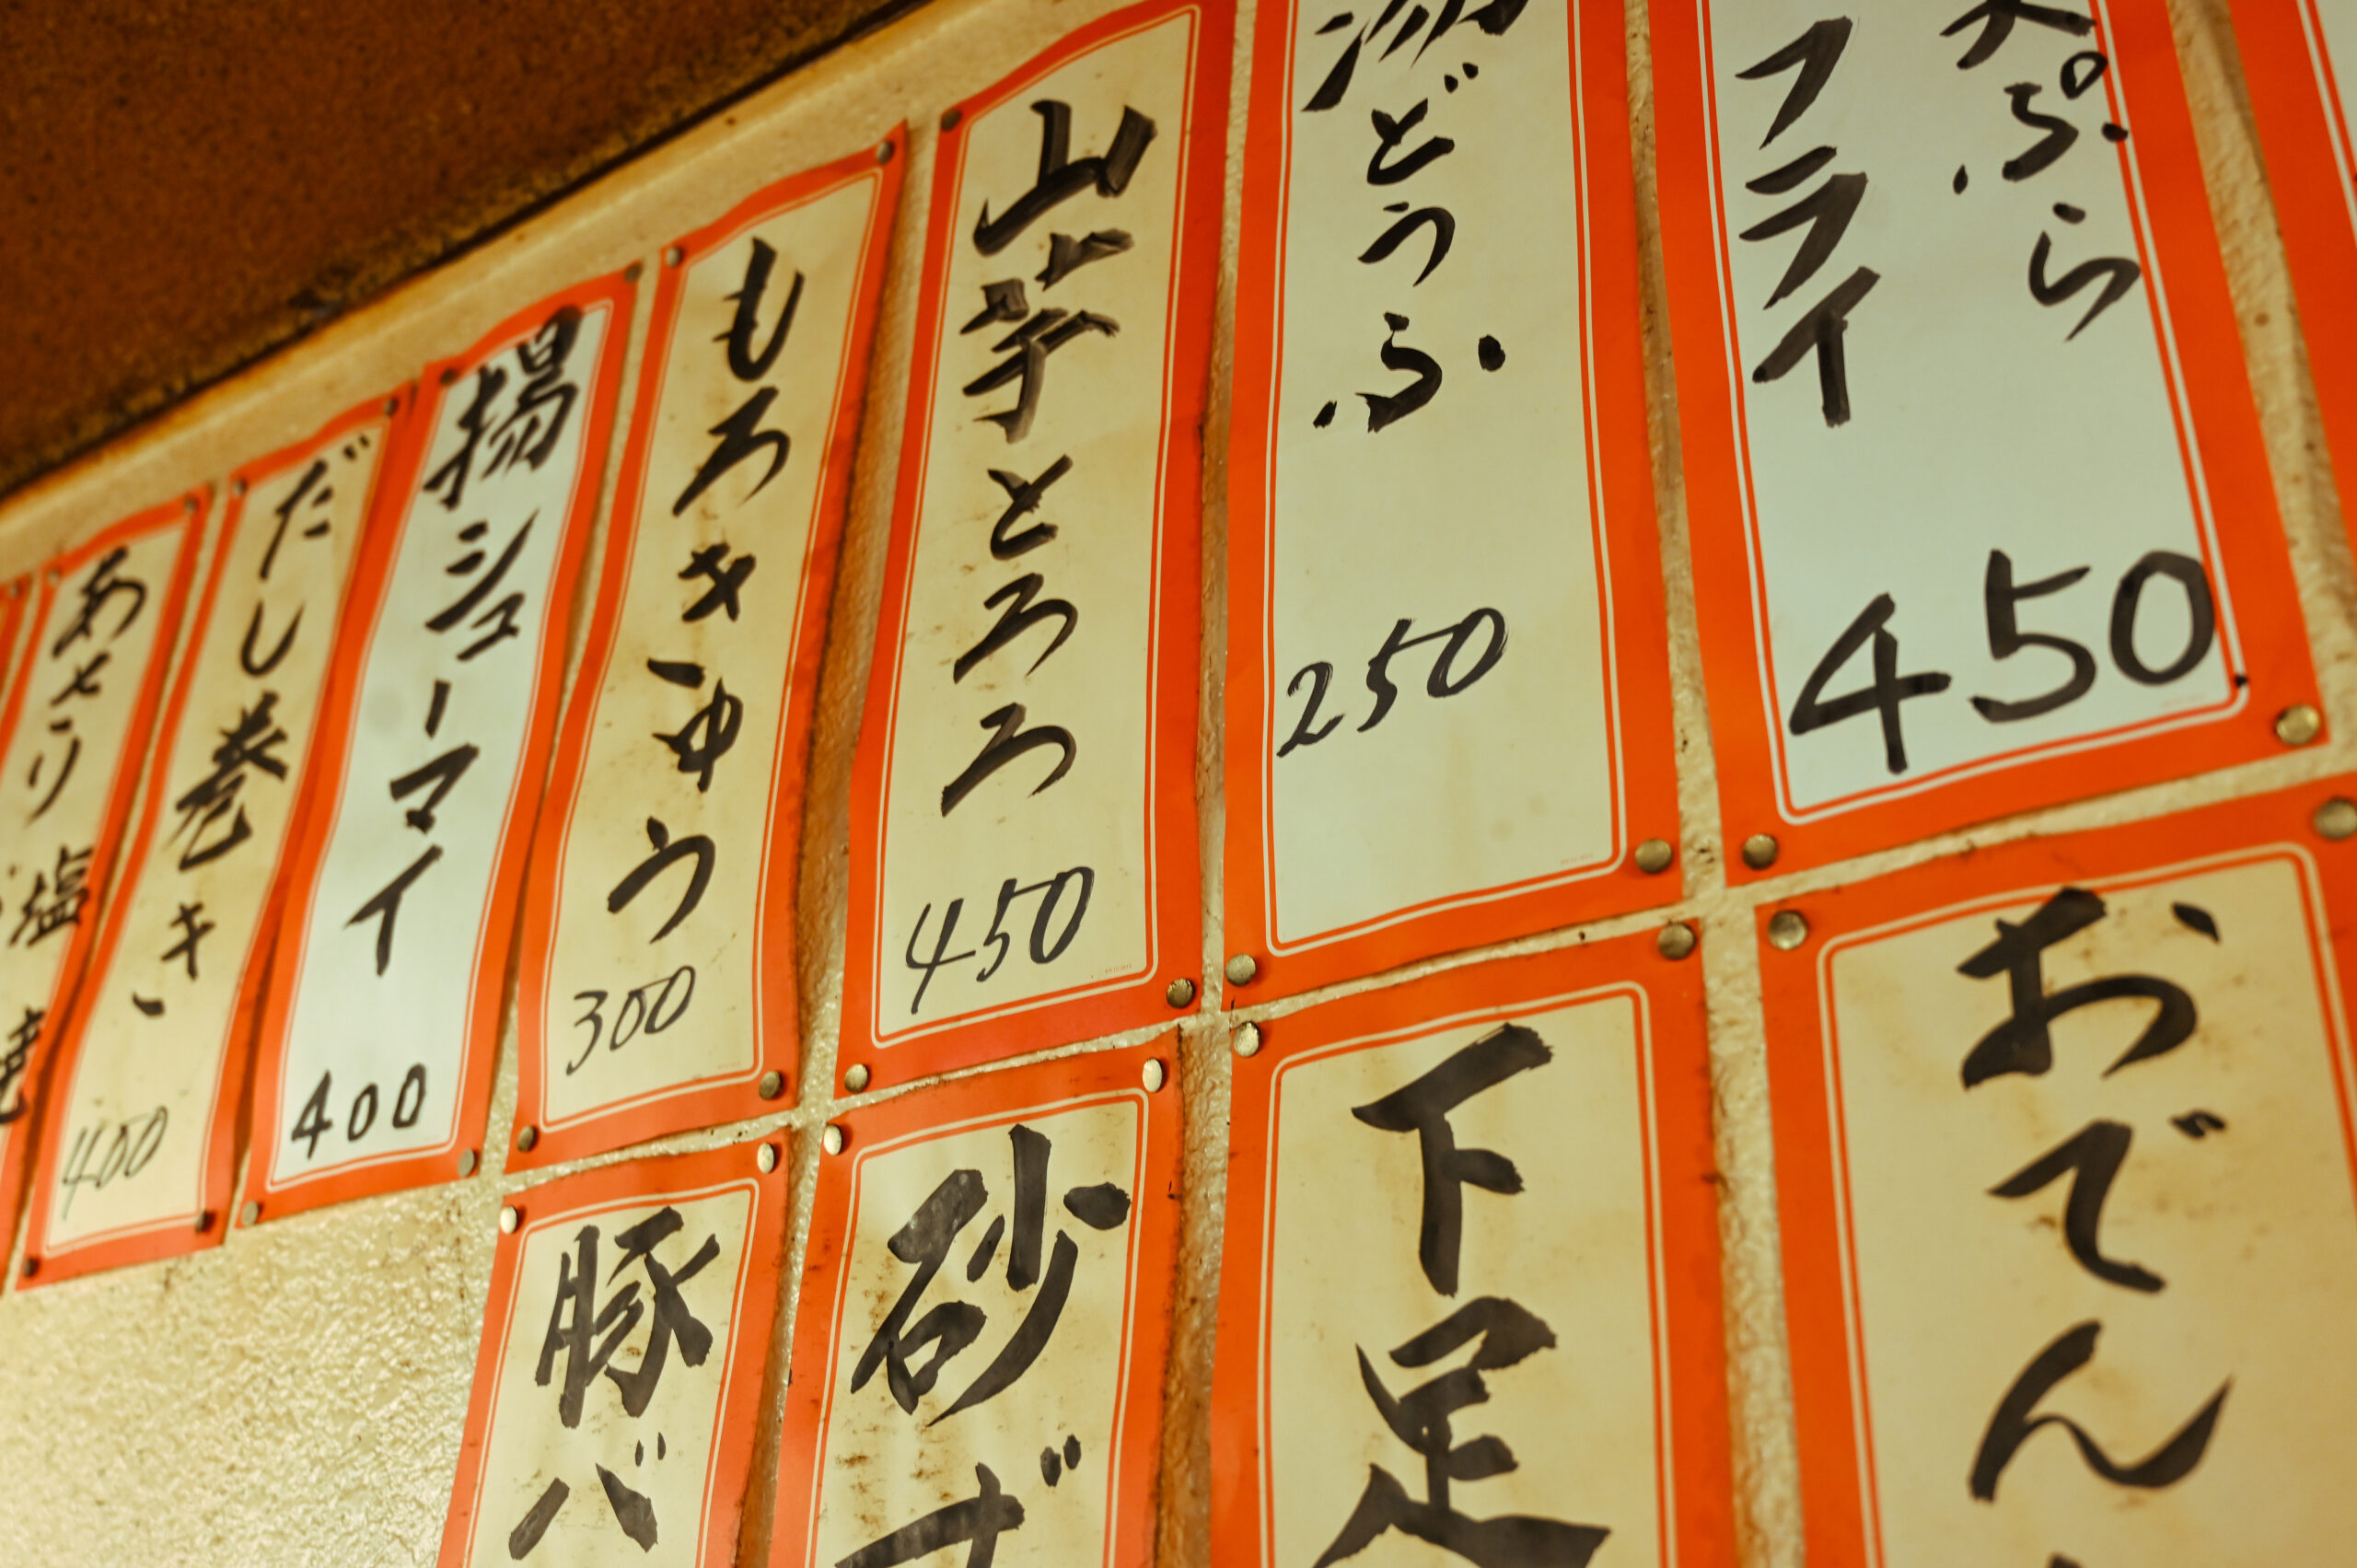 天ぷら
フライ
450
湯どうふ
250
山芋とろろ
450
もろきゅう
300
揚シューマイ
400
だし巻き
400
あさり塩
おでん
下足
砂ず
豚バ